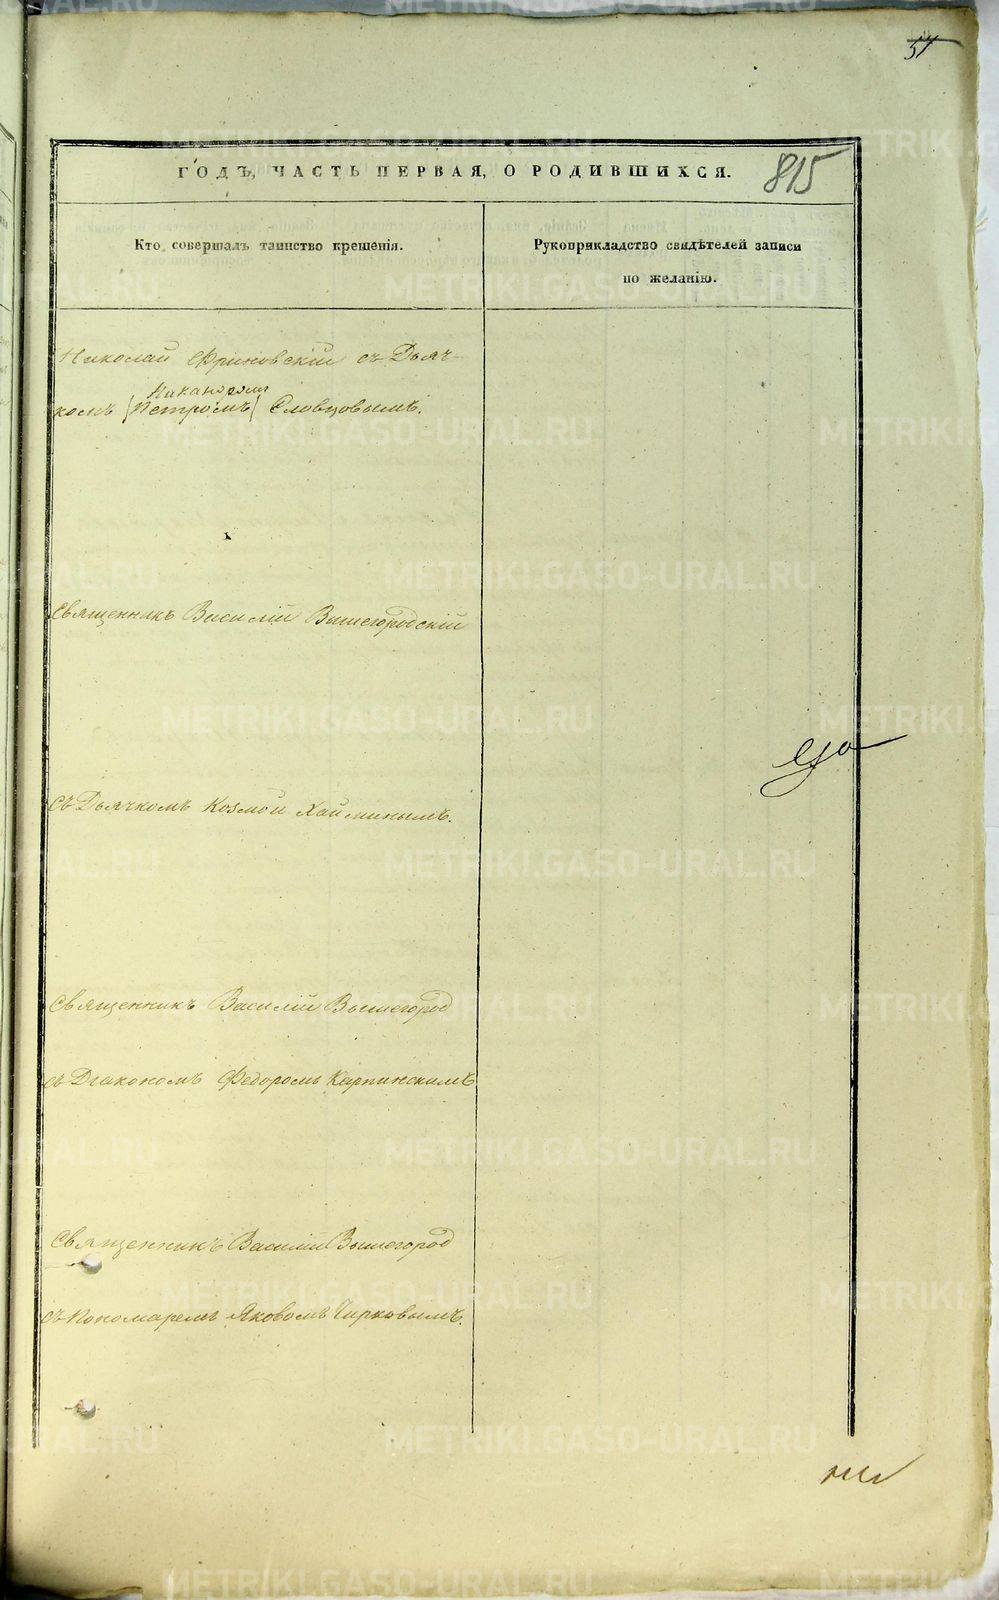 57
ГОДЪ, ЧАСТЬ ПЕРВАЯ, О РОДИВШИХСЯ.
815
Кто совершалъ таинство крещенія.
Рукоприкладство свидѣтелей записи
по желанію.
Николай Фриновскій съ Дьяч-
Никаноромъ
комъ (Петромъ) Словцовымъ.
Священникъ Василій Вышегородскій
съ Дьячкомъ Козмой Хайминымъ.
Священникъ Василій Вышегород
съ Діакономъ Федоромъ Карпинскимъ
Священникъ Василій Вышегород
съ Пономаремъ Яковомъ Чирковымъ.
METRIKI.GASO-URAL.RU